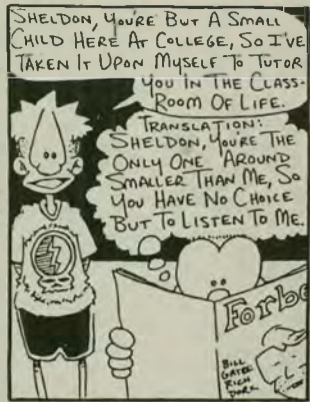 SHELDON, YOU'RE BUT A SMALL
CHILD HERE AT COLLEGE, SO I'VE
TAKEN IT UPON MYSELF TO TUTOR
YOU IN THE CLASS-
ROOM OF LIFE.
TRANSLATION:
SHELDON, YOU'RE THE
ONLY ONE AROUND
SMALLER THAN ME, SO
YOU HAVE NO CHOICE
BUT TO LISTEN TO ME.
Forbe
BILL
GATES
RICH
DORK